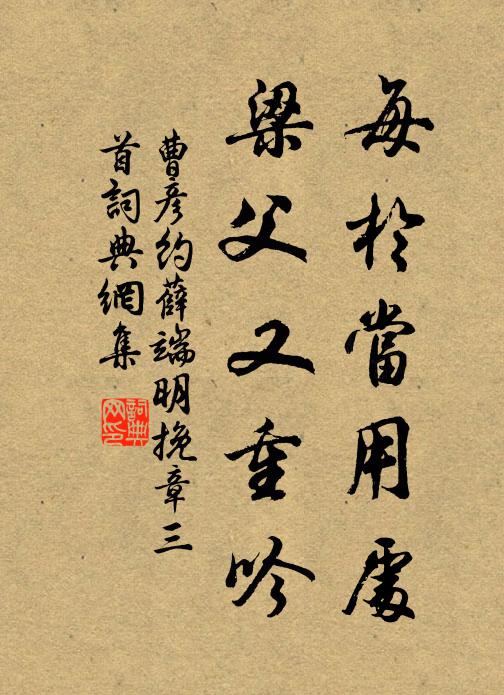 每於當用處
梁父又重吟
曹彦約薛端明挽章三
首詞典網集
詞典
网印